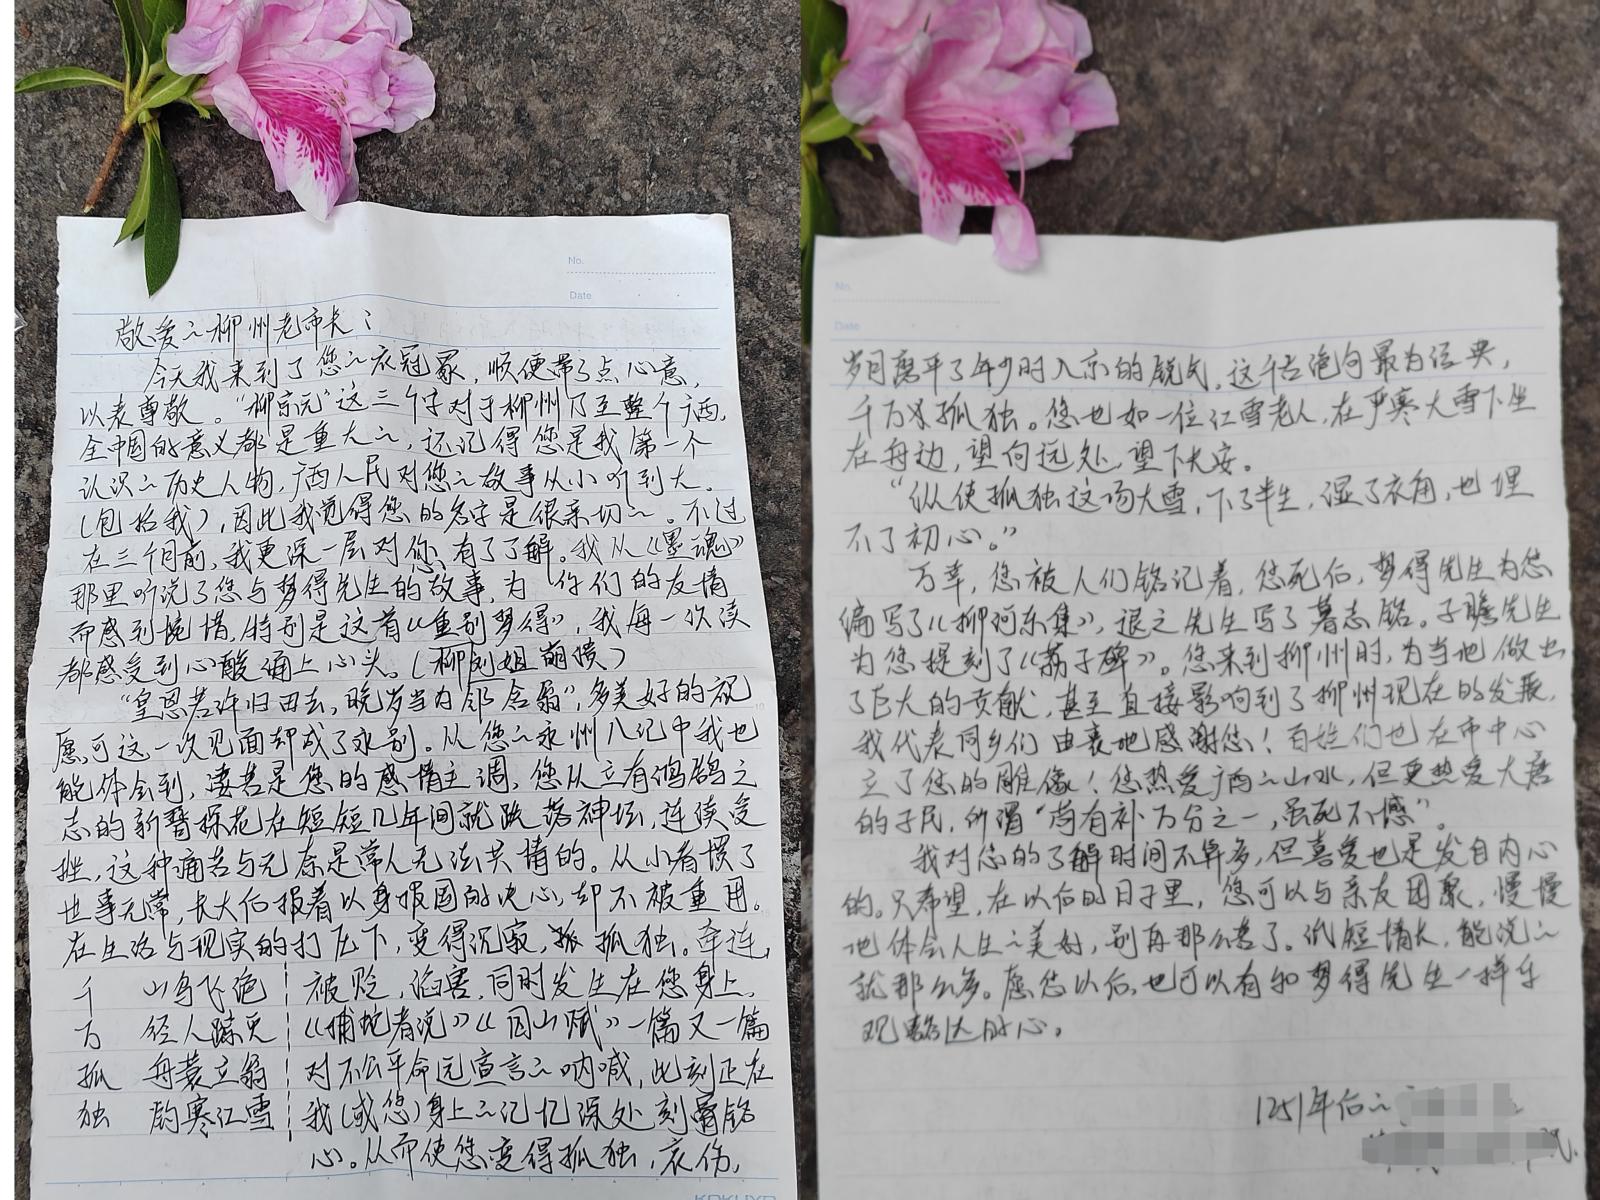 No.
Date
敬爱的柳州老市长：
今天我来到了您的衣冠冢，顺便带了点心意，
以表尊敬。“柳宗元”这三个字对于柳州乃至整个广西，
全中国的意义都是重大的，还记得您是我第一个
认识的历史人物，广西人民对您的故事从小听到大。
（包括我），因此我觉得您的名字是很亲切的。不过
在三个月前，我更深一层对您有了了解。我从《墨魂》
那里听说了您与梦得先生的故事，为你们的友情
而感到惋惜，特别是这首《重别梦得》，我每一次读
都感受到心酸涌上心头。（柳刘姐崩溃）
“皇恩若许归田去，晚岁当为邻舍翁”，多美好的祝
愿，可这一次见面却成了永别。从您的永州八记中我也
能体会到，凄苦是您的感情主调，您从立有鸿鹄之
志的新晋探花在短短几年间就跌落神坛，连续受
挫，这种痛苦与无奈是常人无法共情的。从小看惯了
世事无常，长大后报着以身报国的决心，却不被重用。
在生活与现实的打压下，变得沉寂，孤孤独。牵连，
千 山鸟飞绝 被贬，陷害，同时发生在您身上，
万 径人踪灭 《捕蛇者说》《囚山赋》一篇又一篇
孤 舟蓑立翁 对不公平命运宣言的呐喊，此刻正在
独 钓寒江雪 我（或您）身上的记忆深处刻骨铭
心。从而使您变得孤独，哀伤，
KOKUYO
No.
Date
岁月磨平了年少时入京的锐气。这千古绝句最为经典，
千万孤独。您也如一位江雪老人，在严寒大雪下坐
在舟边，望向远处，望下长安。
“纵使孤独这场大雪，下了半生，湿了衣角，也埋
不了初心。”
万幸，您被人们铭记着，您死后，梦得先生为您
编写了《柳河东集》，退之先生写了墓志铭。子瞻先生
为您提刻了《荔子碑》。您来到柳州时，为当地做出
了巨大的贡献，甚至直接影响到了柳州现在的发展，
我代表同乡们由衷地感谢您！百姓们也在市中心
立了您的雕像！您热爱广西的山水，但更热爱大唐
的子民，所谓“苟有补万分之一，虽死不憾”。
我对您的了解时间不算多，但喜爱也是发自内心
的。只希望，在以后的日子里，您可以与亲友团聚，慢慢
地体会人生的美好，别再那么苦了。纸短情长，能说的
就那么多。愿您以后，也可以有和梦得先生一样乐
观豁达的心。
1251年后的